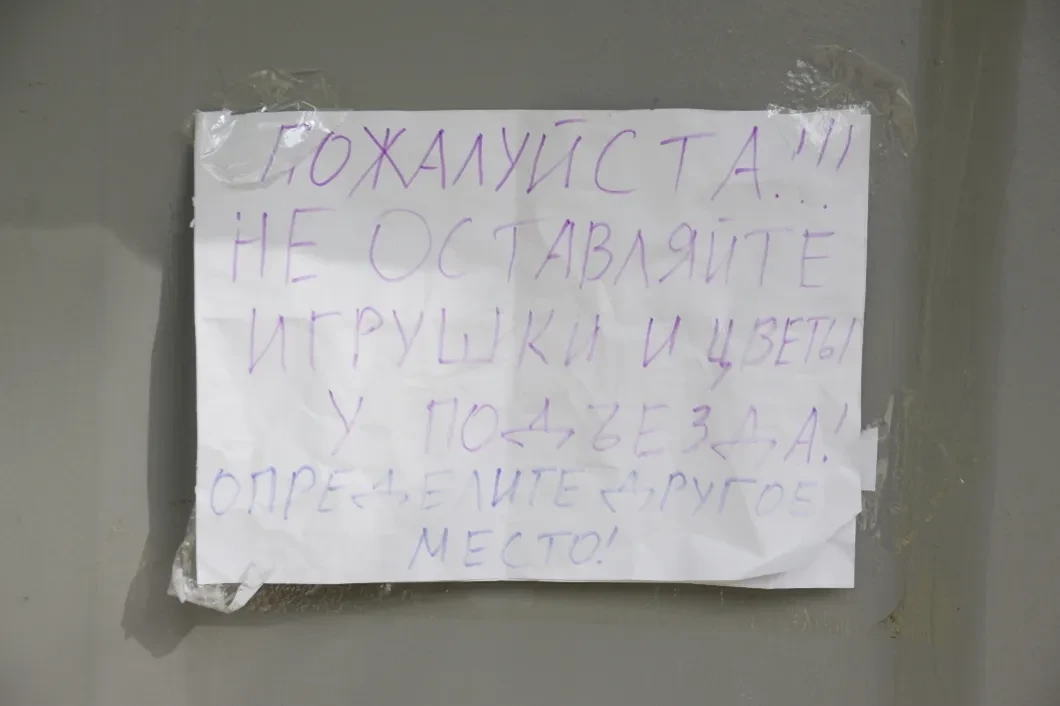 ПОЖАЛУЙСТА!!!
НЕ ОСТАВЛЯЙТЕ
ИГРУШКИ И ЦВЕТЫ
У ПОДЪЕЗДА!
ОПРЕДЕЛИТЕ ДРУГОЕ
МЕСТО!